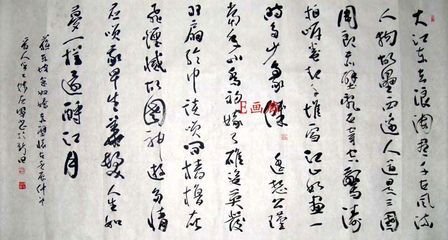 大江东去浪淘尽千古风流
人物故垒西边人道是三国
周郎赤壁乱石穿空惊涛
拍岸卷起千堆雪江山如画一
时多少豪杰遥想公瑾
当年小乔初嫁了雄姿英发
羽扇纶巾谈笑间樯橹灰
飞烟灭故国神游多情
应笑我早生华发人生如
梦一樽还酹江月
E画廊